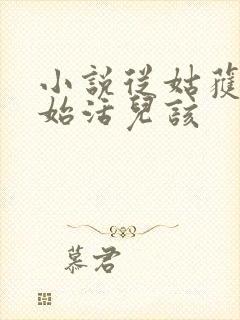 小說從姑獲
始活兒該
慕君